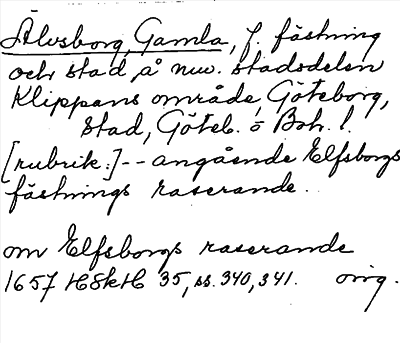 Älvsborg, Gamla, f. fästning
och stad på nuv. stadsdelen
Klippans område, Göteborg,
stad, Göteb. o Boh. l.
[rubrik:] -- angående Elfsborgs
fästnings raserande.
om Elfsborgs raserande
1657 HSkH 35, ss. 340, 341. orig.